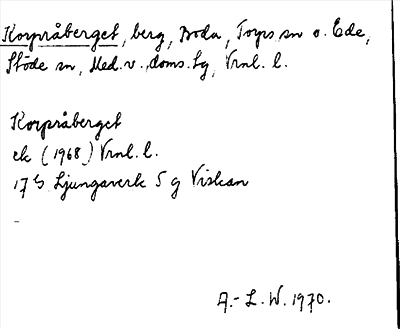 Korpråberget, berg, Boda, Torps sn o. Ede,
Stöde sn, Med. v. doms. tg, Vrnl. l.
Korpråberget
ek (1968) Vrnl. l.
17 Ljungaverk 5 g Viskan
-
A.-L. W. 1970.